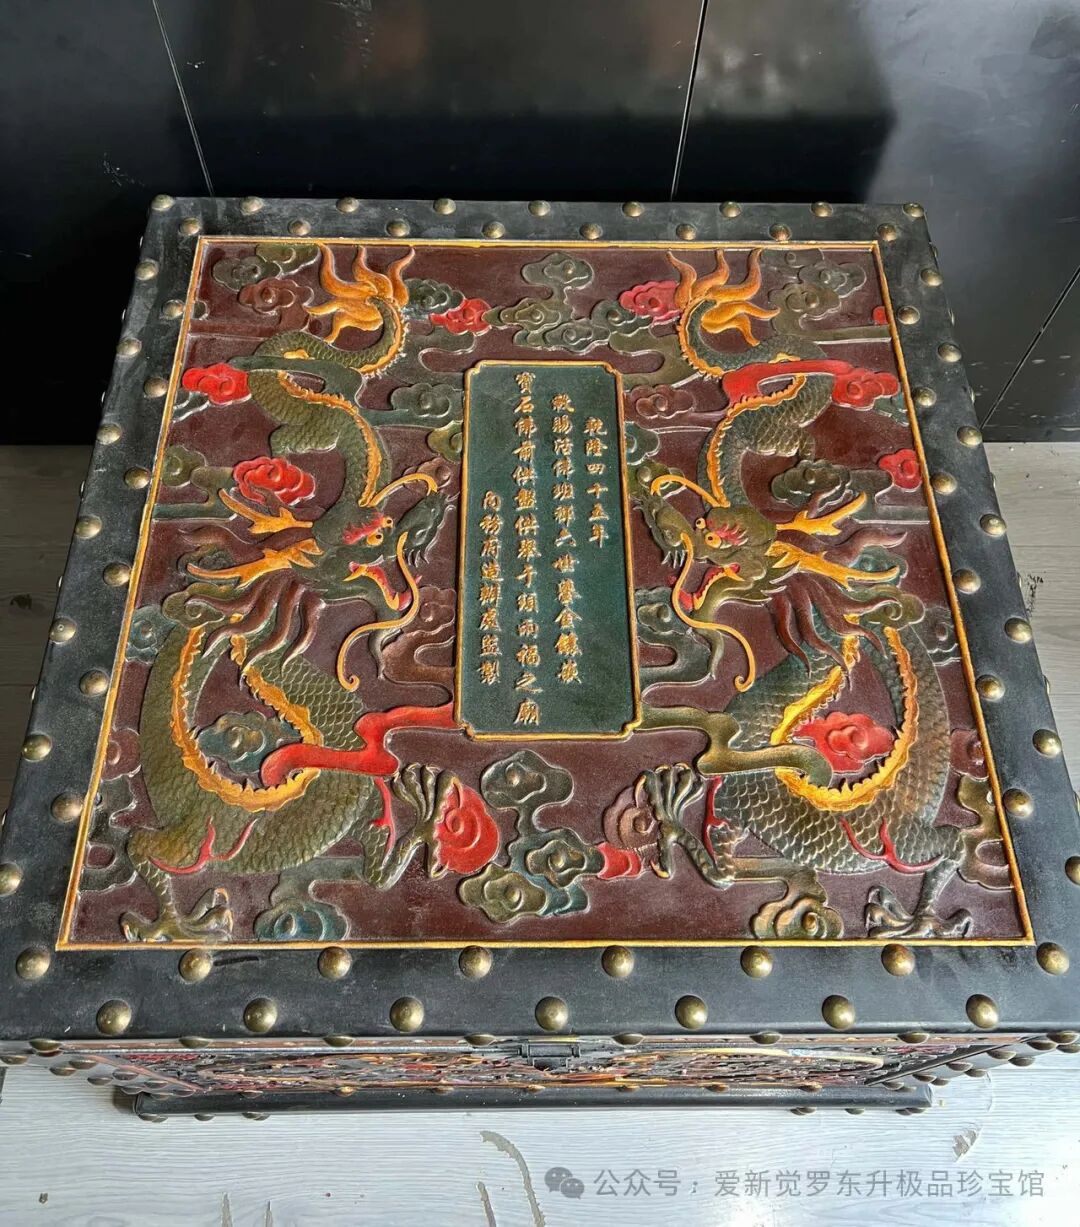 乾隆四十五年
敬賜活佛班禅六世鎏金鑲嵌
寶石佛前供盤供奉千頌雨福之廟
内務府造辦處監製
公众号：爱新觉罗东升极品珍宝馆